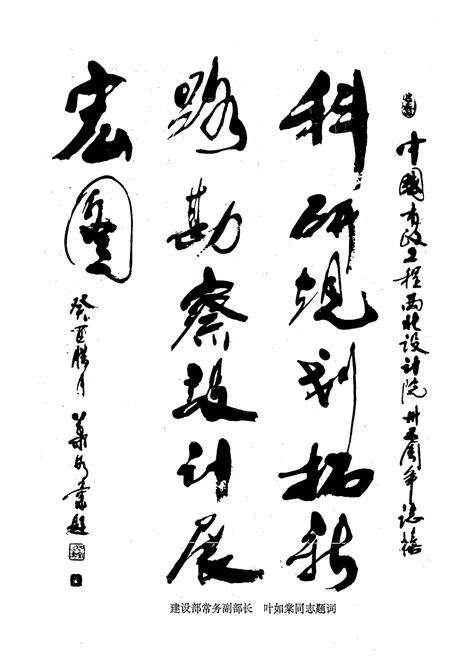 中國市政工程西北设计院卅五周年誌禧
科研规划拓新
路勘察设计展
宏圖
癸酉腊月 葉如棠题
建设部常务副部长 叶如棠同志题词